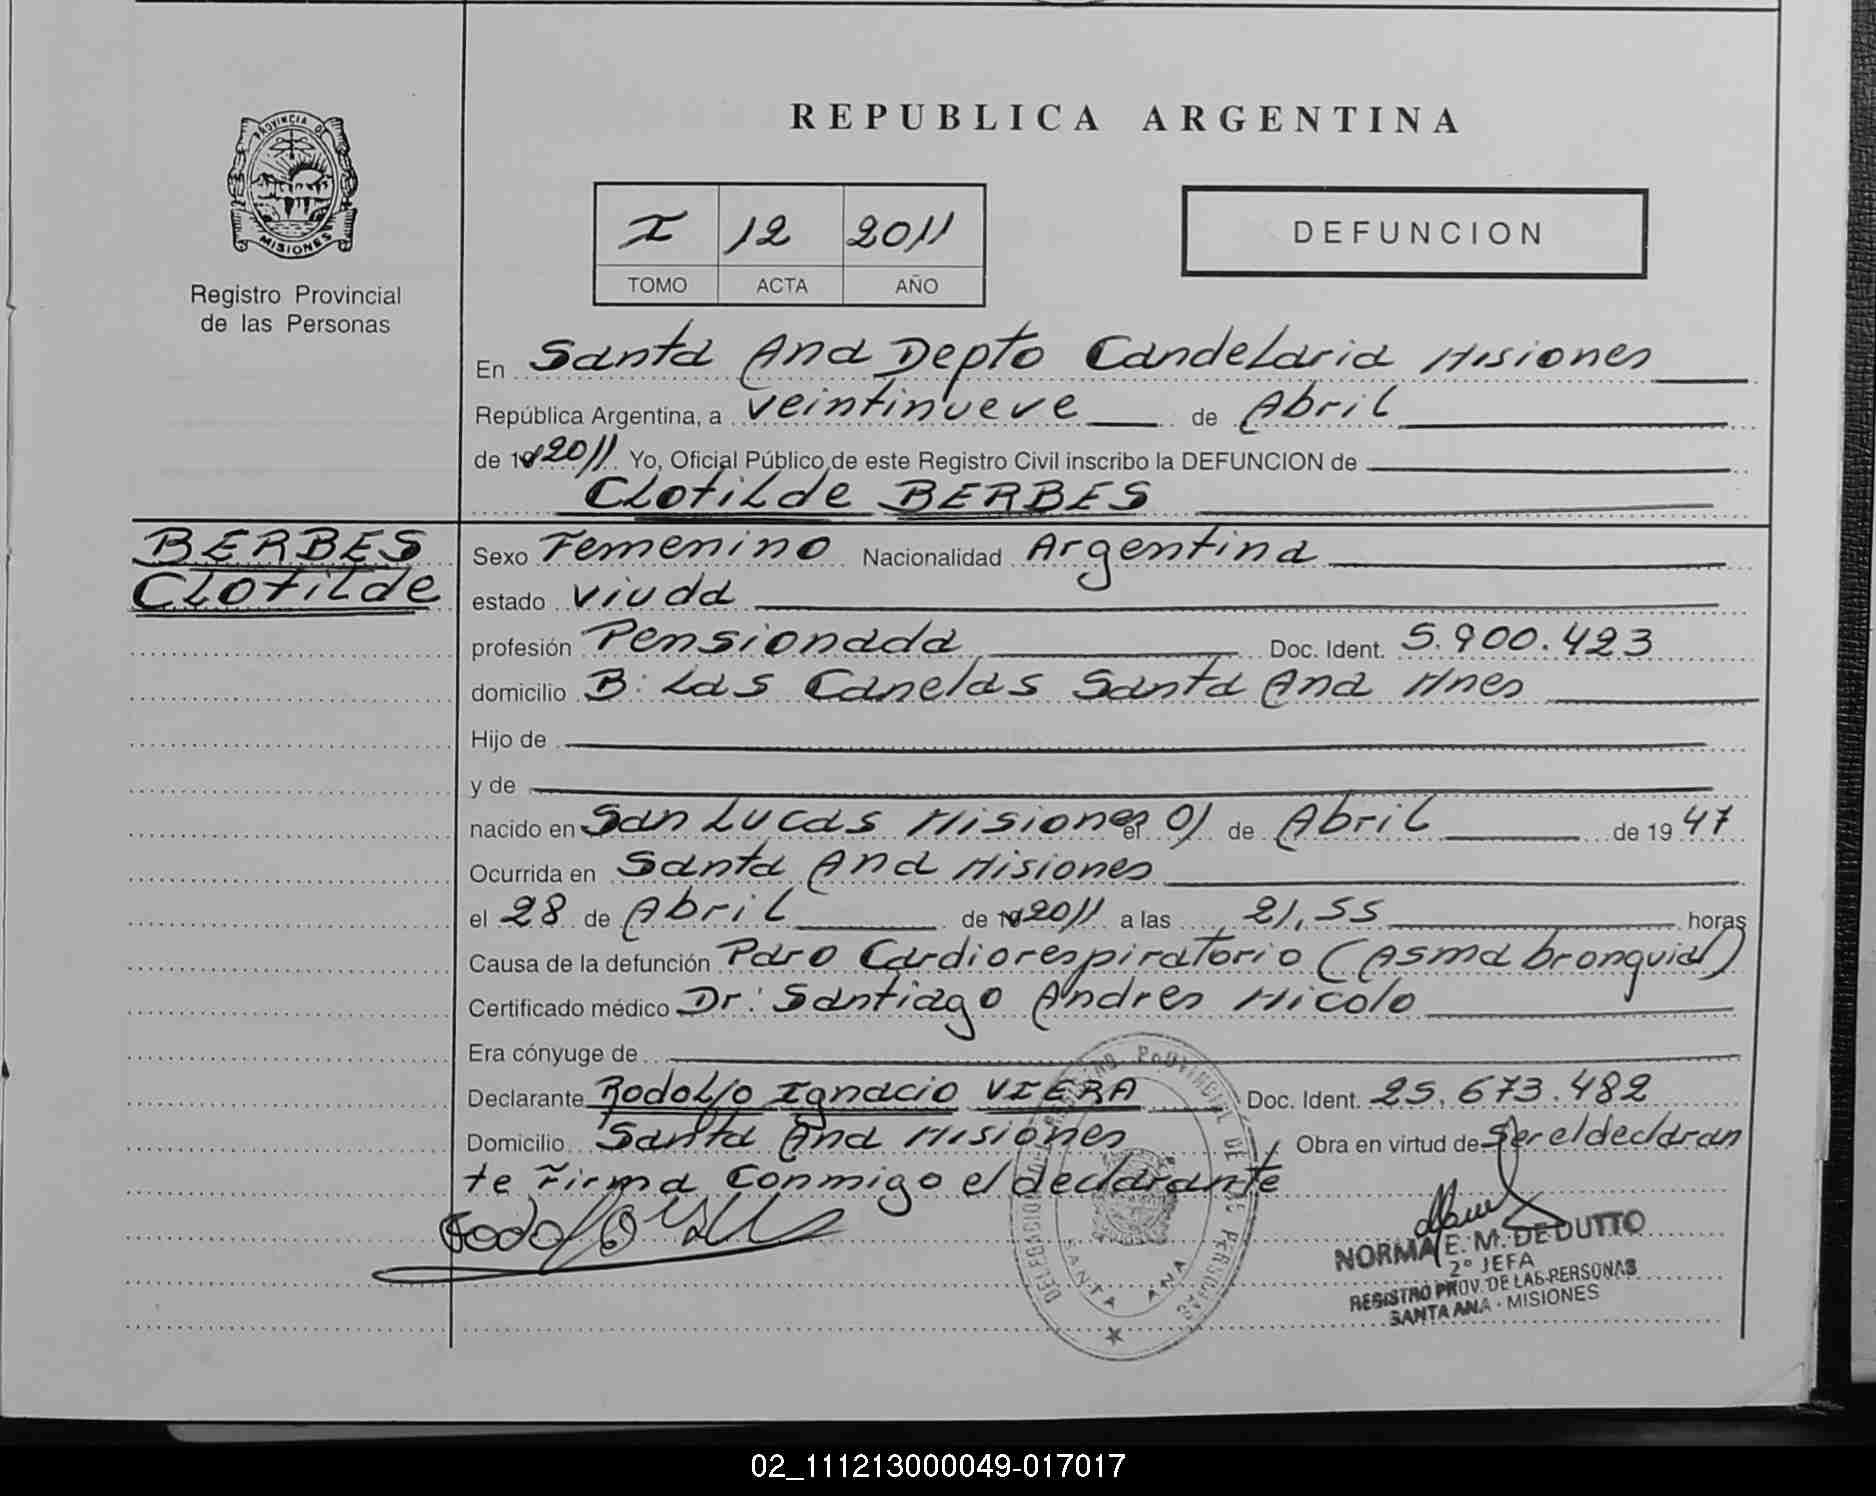 REPUBLICA ARGENTINA
PROVINCIA D
MISIONES
Registro Provincial
de las Personas
I 12 2011
TOMO ACTA AÑO
DEFUNCION
En Santa Ana Depto Candelaria Misiones
República Argentina, a veintinueve de Abril
de 19 2011 Yo, Oficial Público de este Registro Civil inscribo la DEFUNCION de
Clotilde BERBES
BERBES
Clotilde
Sexo Femenino Nacionalidad Argentina
estado viuda
profesión Pensionada Doc. Ident. 5.900.423
domicilio B: Las Canelas Santa Ana Mnes
Hijo de
y de
nacido en San Lucas Misiones el 01 de Abril de 19 47
Ocurrida en Santa Ana Misiones
el 28 de Abril de 19 2011 a las 21,55 horas
Causa de la defunción Paro Cardiorespiratorio (Asma bronquial)
Certificado médico Dr: Santiago Andres Micolo
Era cónyuge de
Declarante Rodolfo Ignacio VIERA Doc. Ident. 25.673.482
Domicilio Santa Ana Misiones Obra en virtud de Ser el declaran
te Firma Conmigo el declarante
NORMA E. M. DE DUTTO
2° JEFA
REGISTRO PROV. DE LAS PERSONAS
SANTA ANA - MISIONES
SANTA ANA
02_111213000049-017017